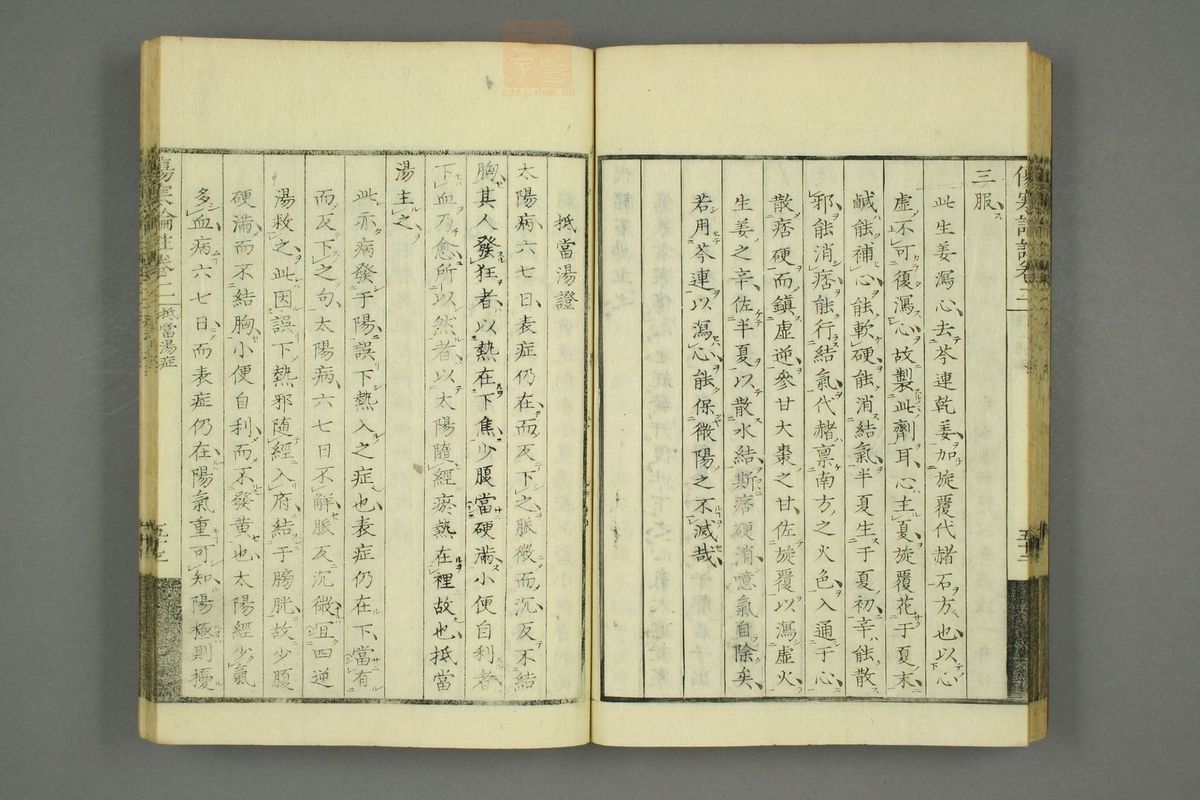 三服
此生姜瀉心去芩連乾姜加旋覆代赭石方也以心
虛不可復瀉心故製此劑耳心主夏旋覆花于夏末
鹹能補心能軟硬能消結氣半夏生于夏初辛能散
邪能消痞能行結氣代赭禀南方之火色入通于心
散痞硬而鎮虛逆參甘大棗之甘佐旋覆以瀉虛火
生姜之辛佐半夏以散水結斯痞硬消噫氣自除矣
若用芩連以瀉心能保微陽之不滅哉
抵當湯證
太陽病六七日表症仍在而反下之脈微而沉反不結
胸其人發狂者以熱在下焦少腹當硬滿小便自利者
下血乃愈所以然者以太陽隨經瘀熱在裡故也抵當
湯主之
此亦病發于陽誤下熱入之症也表症仍在下當有
而反下之句太陽病六七日不解脈反沉微宜四逆
湯救之此因誤下熱邪隨經入府結于膀胱故少腹
硬滿而不結胸小便自利而不發黃也太陽經少氣
多血病六七日而表症仍在陽氣重可知陽極則擾
傷寒論註卷二
抵當湯症